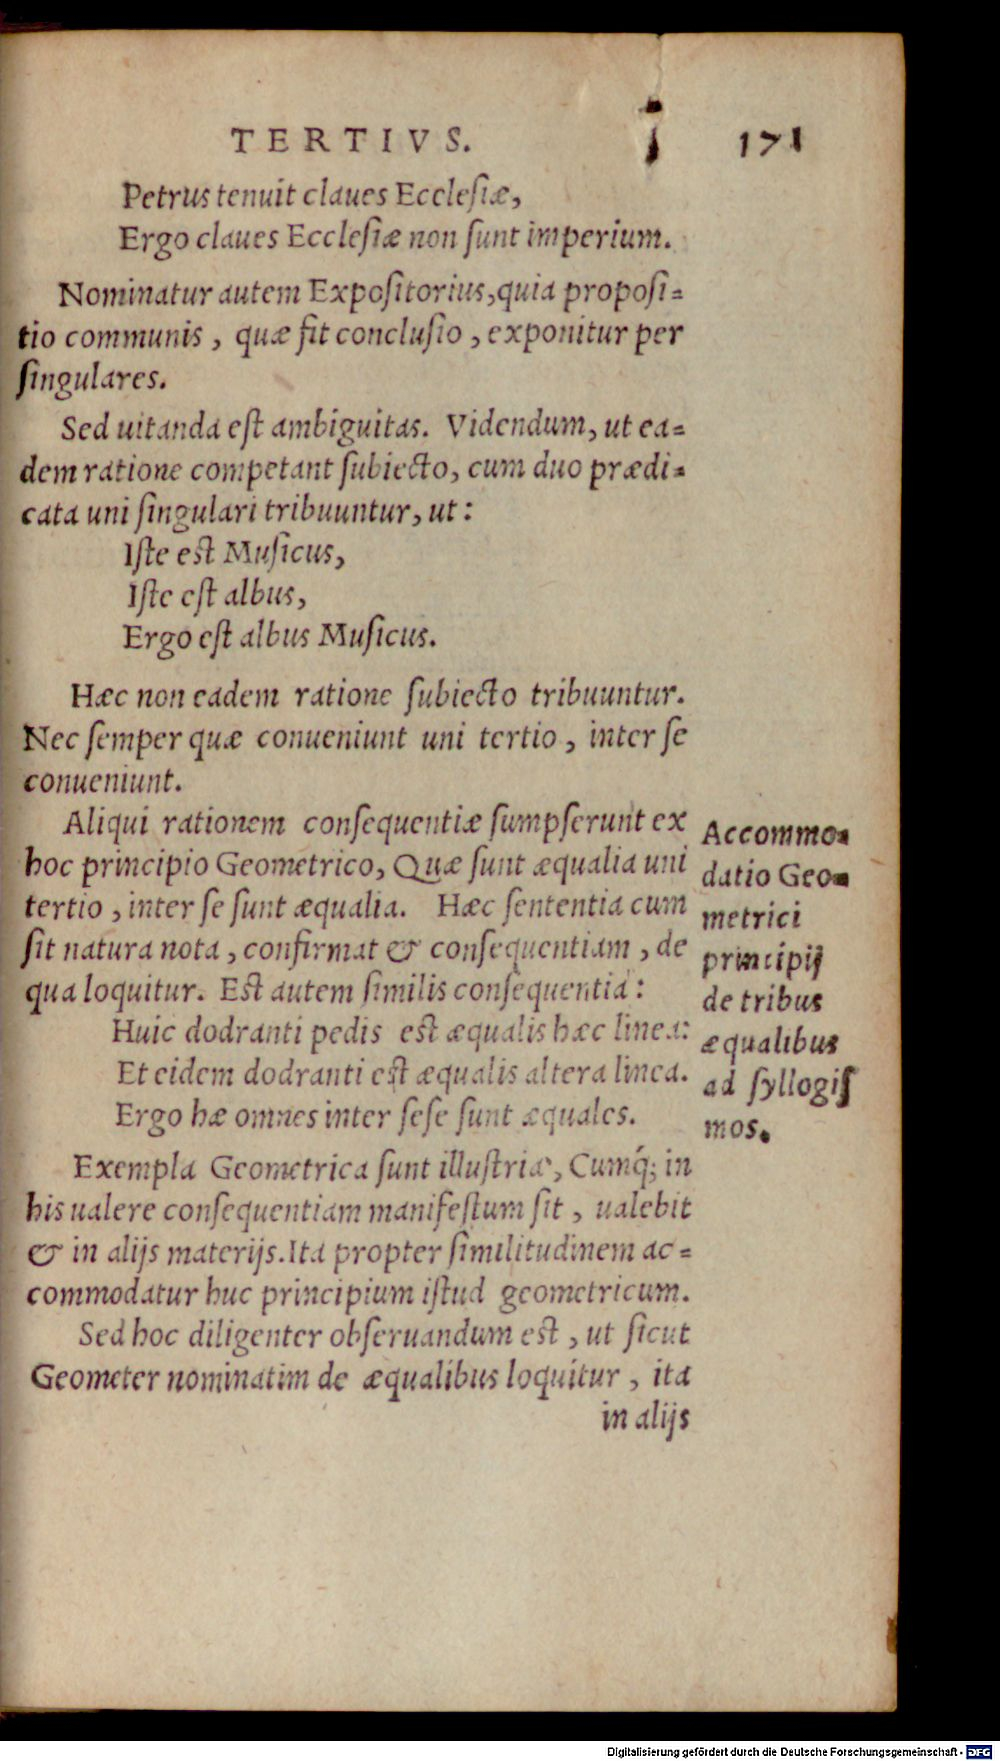 TERTIVS. 171
Petrus tenuit claues Ecclesiæ,
Ergo claues Ecclesiæ non sunt imperium.
Nominatur autem Expositorius, quia proposi=
tio communis, quæ fit conclusio, exponitur per
singulares.
Sed uitanda est ambiguitas. Videndum, ut ea=
dem ratione competant subiecto, cum duo prædi=
cata uni singulari tribuuntur, ut:
Iste est Musicus,
Iste est albus,
Ergo est albus Musicus.
Hæc non eadem ratione subiecto tribuuntur.
Nec semper quæ conueniunt uni tertio, inter se
conueniunt.
Aliqui rationem consequentiæ sumpserunt ex
hoc principio Geometrico, Quæ sunt æqualia uni
tertio, inter se sunt æqualia. Hæc sententia cum
sit natura nota, confirmat & consequentiam, de
qua loquitur. Est autem similis consequentia:
Huic dodranti pedis est æqualis hæc linea:
Et eidem dodranti est æqualis altera linea.
Ergo hæ omnes inter sese sunt æquales.
Exempla Geometrica sunt illustria, Cumq́; in
his ualere consequentiam manifestum sit, ualebit
& in alijs materijs. Ita propter similitudinem ac=
commodatur huc principium istud geometricum.
Sed hoc diligenter obseruandum est, ut sicut
Geometer nominatim de æqualibus loquitur, ita
in alijs
Accommo=
datio Geo=
metrici
principij
de tribus
æqualibus
ad syllogis
mos.
Digitalisierung gefördert durch die Deutsche Forschungsgemeinschaft - DFG